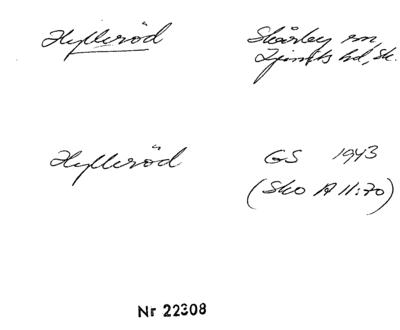 Hylleröd Skårby sn,
Ljunits hd, Sk.
Hylleröd GS 1943
(Sko A 11:70)
Nr 22308